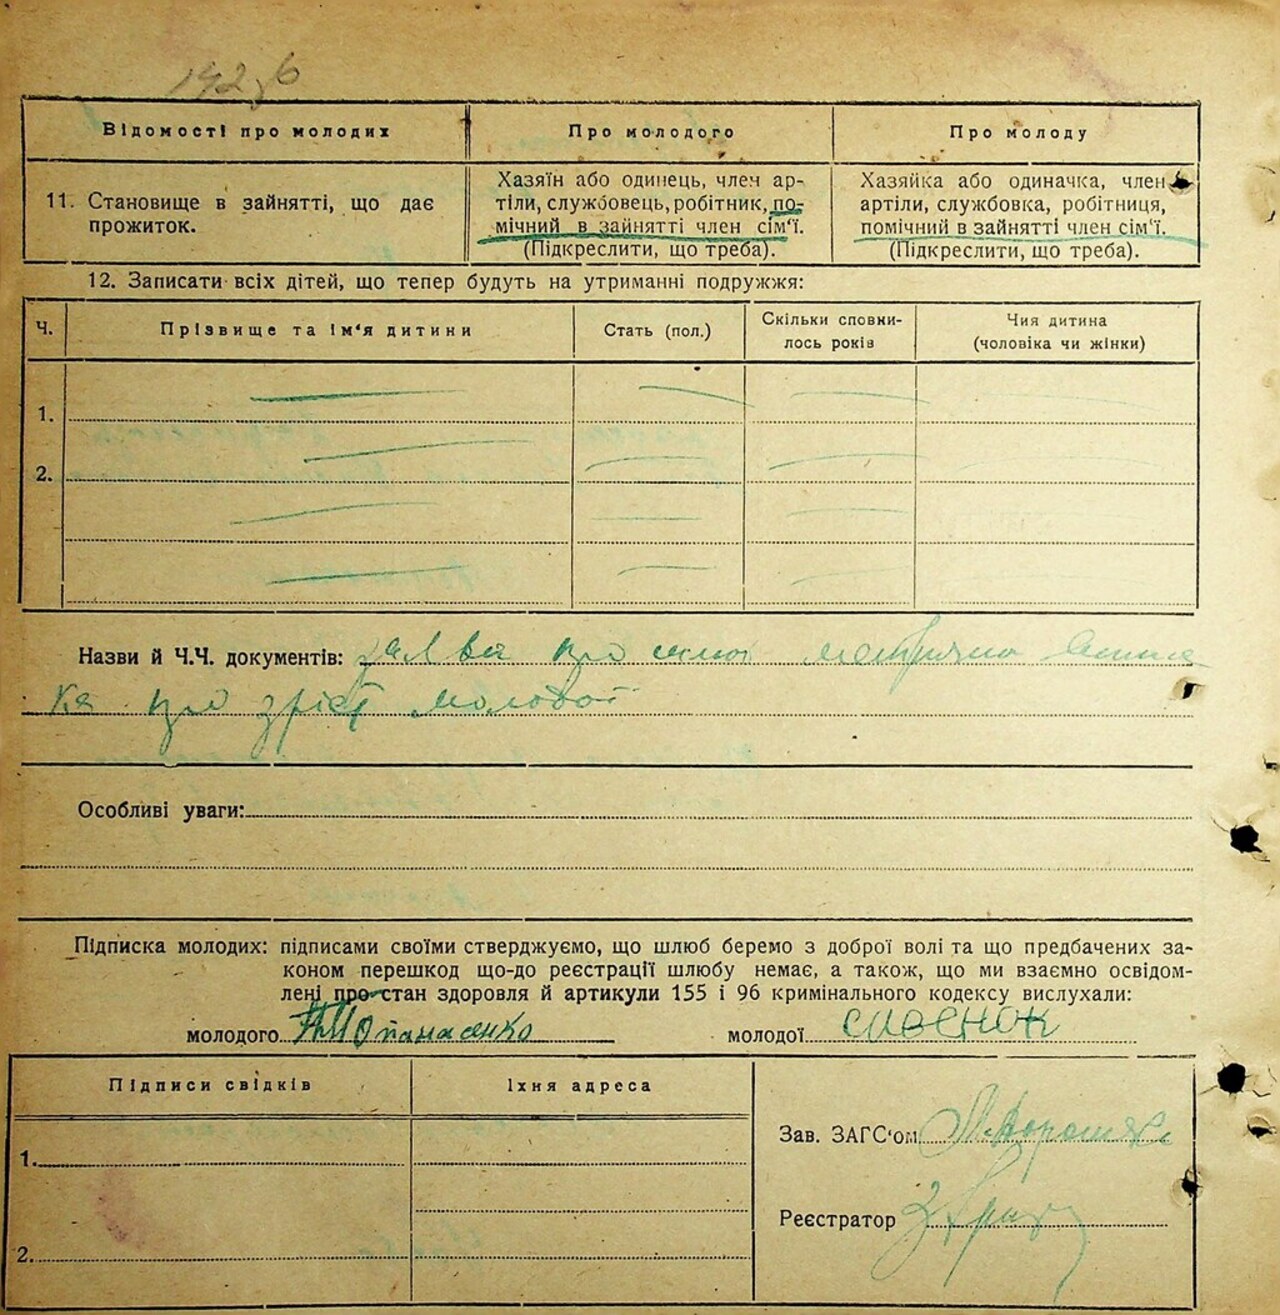 Відомості про молодих
Про молодого
Про молоду
11. Становище в зайнятті, що дає
прожиток.
Хазяїн або одинець, член ар-
тіли, службовець, робітник, по-
мічний в зайнятті член сім'ї.
(Підкреслити, що треба).
Хазяйка або одиначка, член
артіли, службовка, робітниця,
помічний в зайнятті член сім'ї.
(Підкреслити, що треба).
12. Записати всіх дітей, що тепер будуть на утриманні подружжя:
Ч.
Прізвище та ім'я дитини
Стать (пол.)
Скільки сповни-
лось років
Чия дитина
(чоловіка чи жінки)
1.
2.
Назви й Ч.Ч. документів: про метрична
ка про зріст молодої
Особливі уваги:
Підписка молодих: підписами своїми стверджуємо, що шлюб беремо з доброї волі та що предбачених за-
коном перешкод що-до реєстрації шлюбу немає, а також, що ми взаємно освідом-
лені про стан здоровля й артикули 155 і 96 кримінального кодексу вислухали:
молодого Опанасенко
молодої
Підписи свідків
Їхня адреса
1.
2.
Зав. ЗАГС'ом
Реєстратор